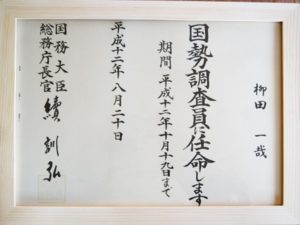 柳田 一哉
国勢調査員に任命します
期間 平成十二年十月十九日まで
平成十二年八月二十日
国務大臣
総務庁長官 續 訓弘